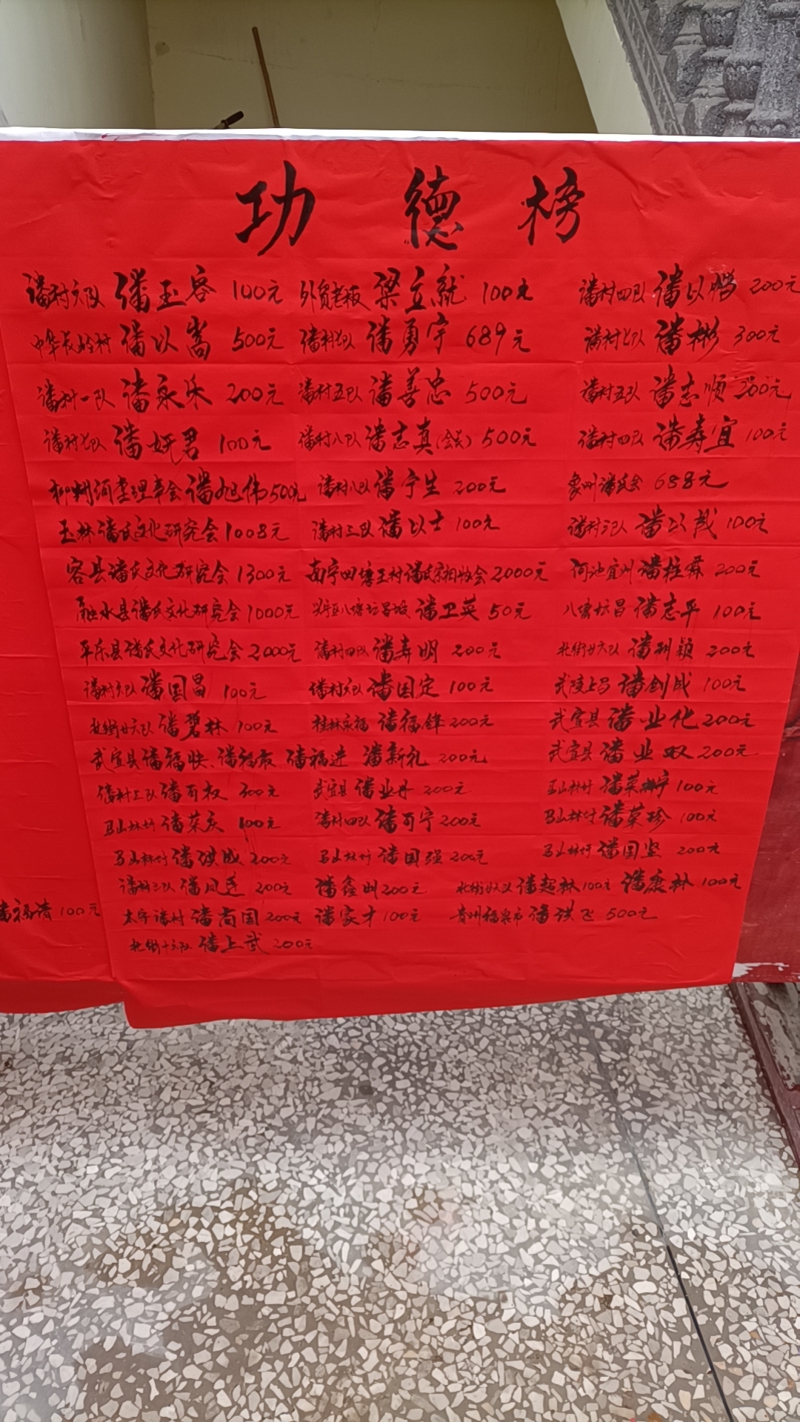 功德榜
潘村六队 潘玉容 100元 外贸老板 梁立就 100元 潘村四队 潘以 200元
潘以嵩 500元 潘村七队 潘勇宇 689元 潘村七队 潘彬 300元
潘村一队 潘永乐 200元 潘村五队 潘善忠 500元 潘村五队 潘志顺 300元
潘村七队 潘妍君 100元 潘村八队 潘志真(会长) 500元 潘村四队 潘寿宜 100元
柳州 理事会 潘旭伟 500元 潘村八队 潘宁生 200元 象州潘氏会 688元
玉林潘氏文化研究会 1008元 潘村三队 潘以士 100元 潘村 队 潘以 100元
容县潘氏文化研究会 1300元 南宁四塘王村潘氏宗相会 2000元 河池宜州 潘桂 200元
融水县潘氏文化研究会 1000元 兴宁区八塘坛昌坡 潘卫英 50元 八塘坛昌 潘志平 100元
平乐县潘氏文化研究会 2000元 潘村四队 潘寿明 200元 北街廿六队 潘 颖 200元
潘村六队 潘国昌 100元 潘村六队 潘国定 100元 武陵上吕 潘剑成 100元
北街廿六队 潘碧林 100元 桂林永福 潘福锋 200元 武宣县 潘业化 200元
武宣县 潘福快、潘福 潘福进 潘新礼 200元 武宣县 潘业双 200元
潘村 队 潘有权 300元 武宣县 潘业丹 200元 马山林村 潘荣宁 100元
马山林村 潘荣庆 100元 潘村四队 潘可宁 200元 马山林村 潘荣珍 100元
马山林村 潘洪 200元 马山林村 潘国强 200元 马山林村 潘国坚 200元
潘村三队 潘凤莲 200元 潘鑫 200元 北街廿六队 潘起林 100元 潘康林 100元
潘福清 100元 太平潘村 潘尚国 200元 潘家才 100元 贵州福泉市 潘洪飞 500元
北街十六队 潘上武 200元